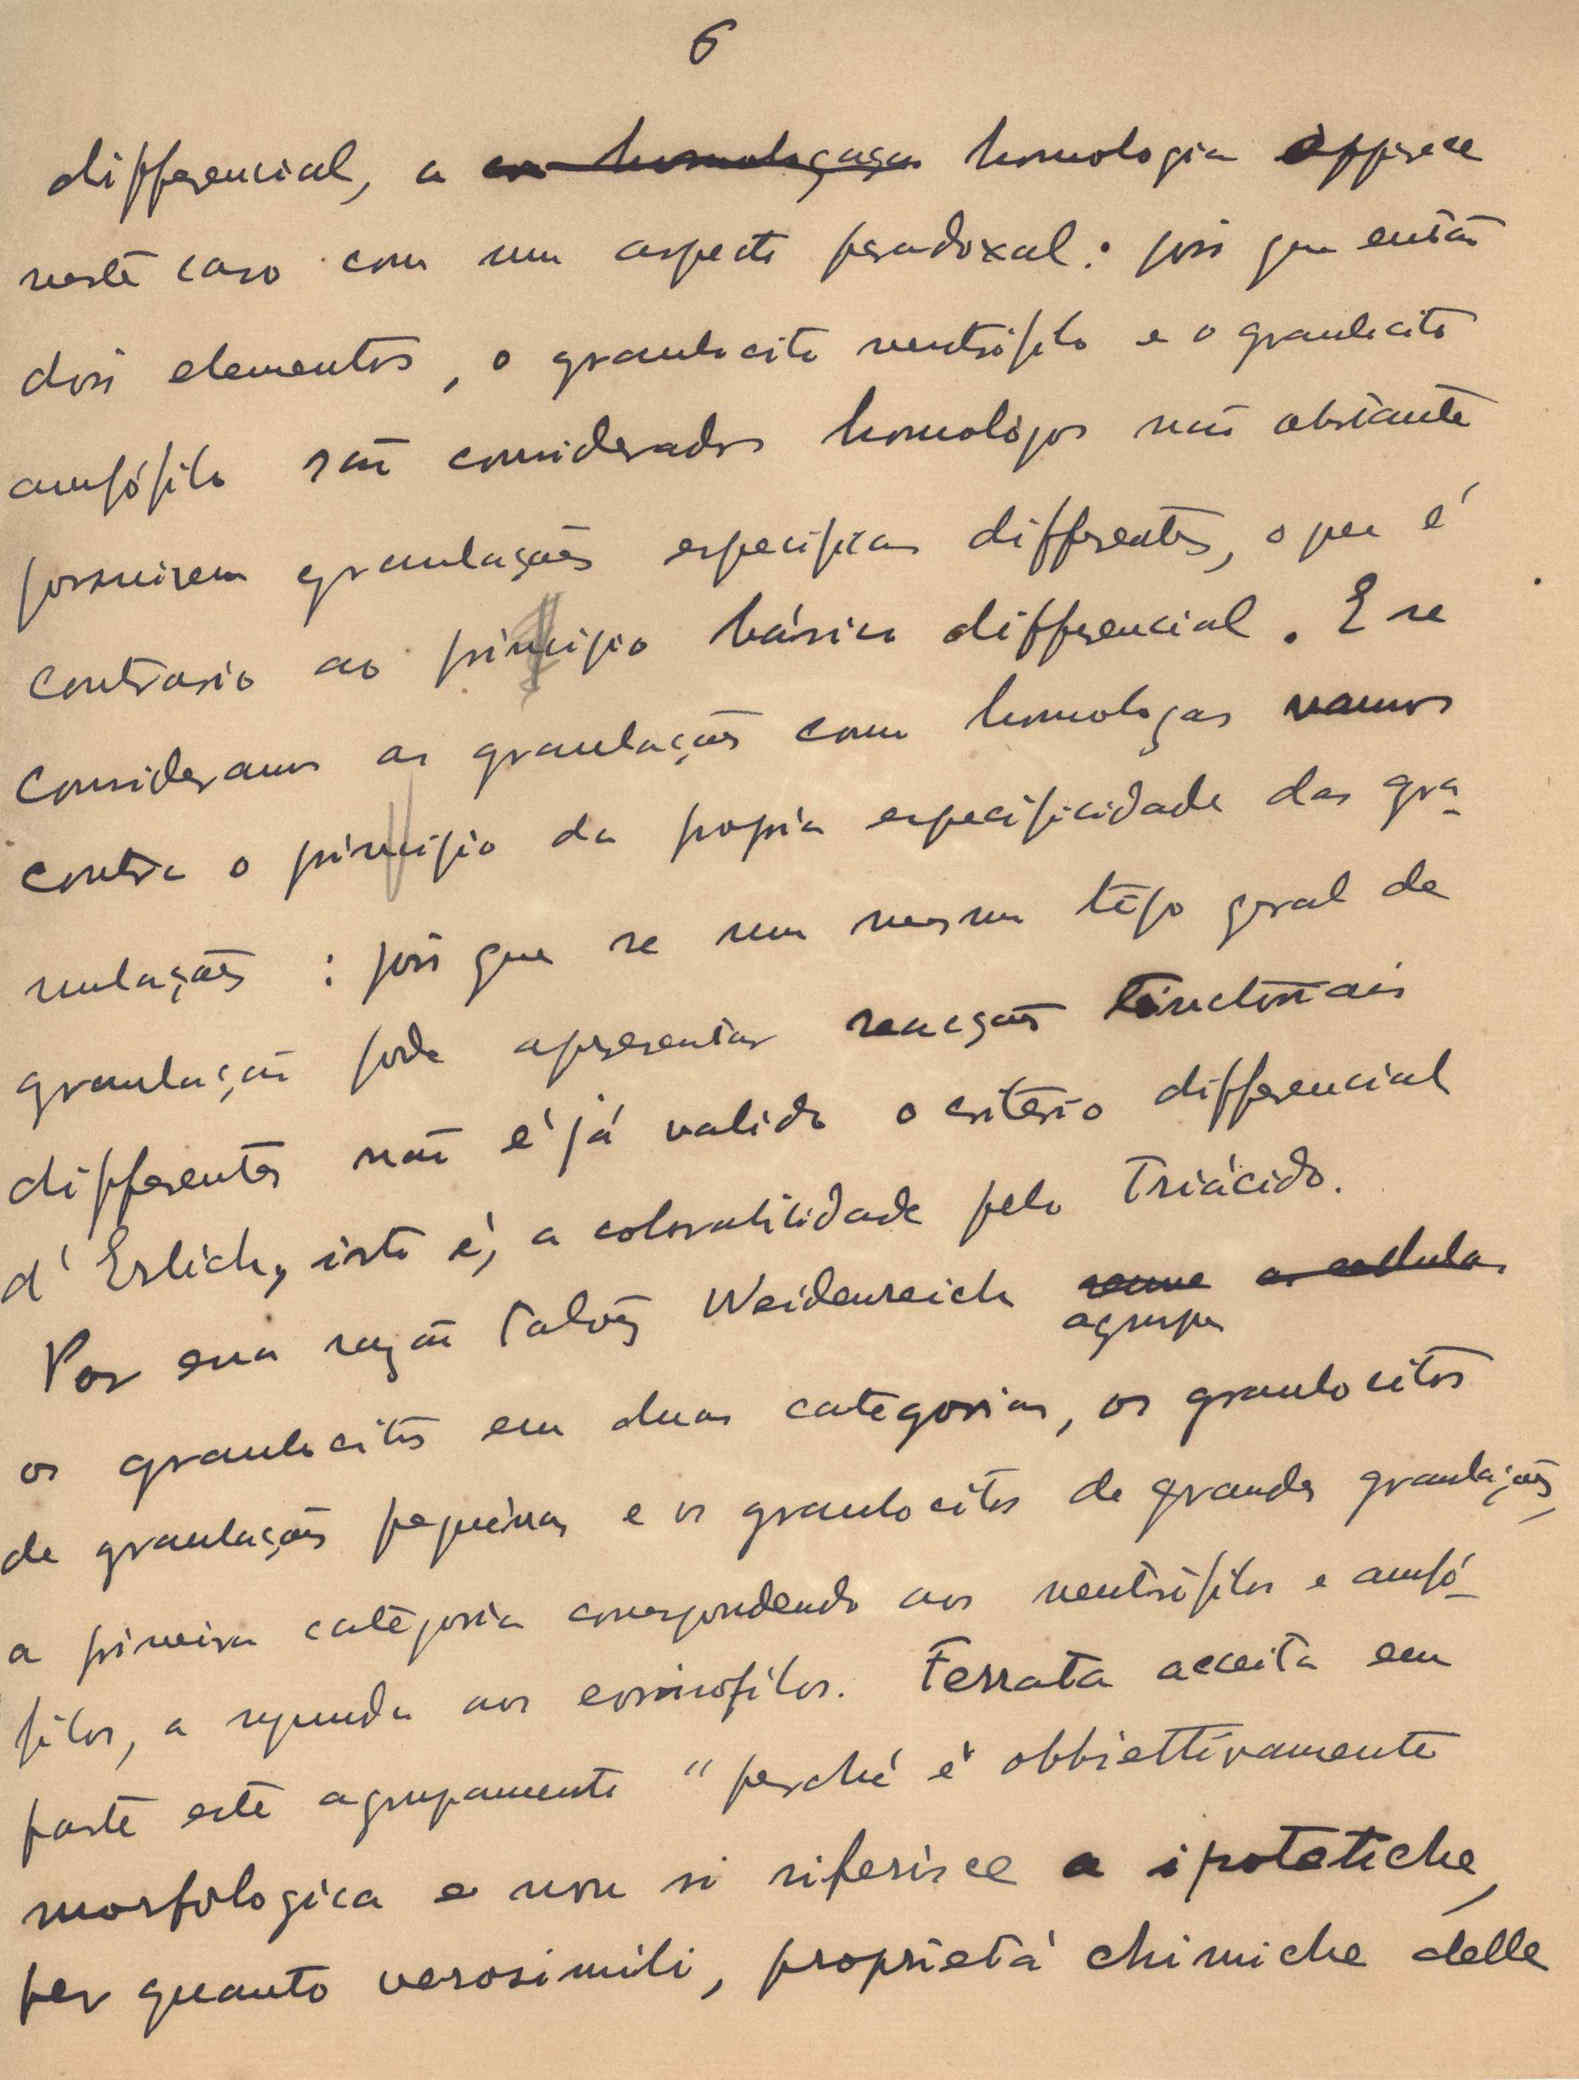 6
differencial, a homologia offerece
neste caso com um aspecto paradoxal: pois que então
dois elementos, o granulocito neutrófilo e o granulocito
amfófilo são considerados homologos não obstante
possuirem granulações especificas differentes, o que é
contrario ao principio básico differencial. E se
consideramos as granulações como homologas vamos
contra o principio da propria especificidade das gra-
nulações: pois que se um mesmo tipo geral de
granulação pode apresentar reacções tinctoriais
differentes não é já valido o criterio differencial
d'Erlich, isto é, a colorabilidade pelo Triácido.
Por essa razão talvez Weidenreich reune as cellulas
agrupa
os granulocitos em duas categorias, os granulocitos
de granulações pequenas e os granulocitos de grandes granulações,
a primeira categoria correspondendo aos neutrófilos e amfó-
filos, a segunda aos eosinofilos. Ferrata acceita em
parte este agrupamento "perché è obbiettivamente
morfologica e non si riferisce a ipotetiche,
per quanto verosimili, proprietá chimiche delle